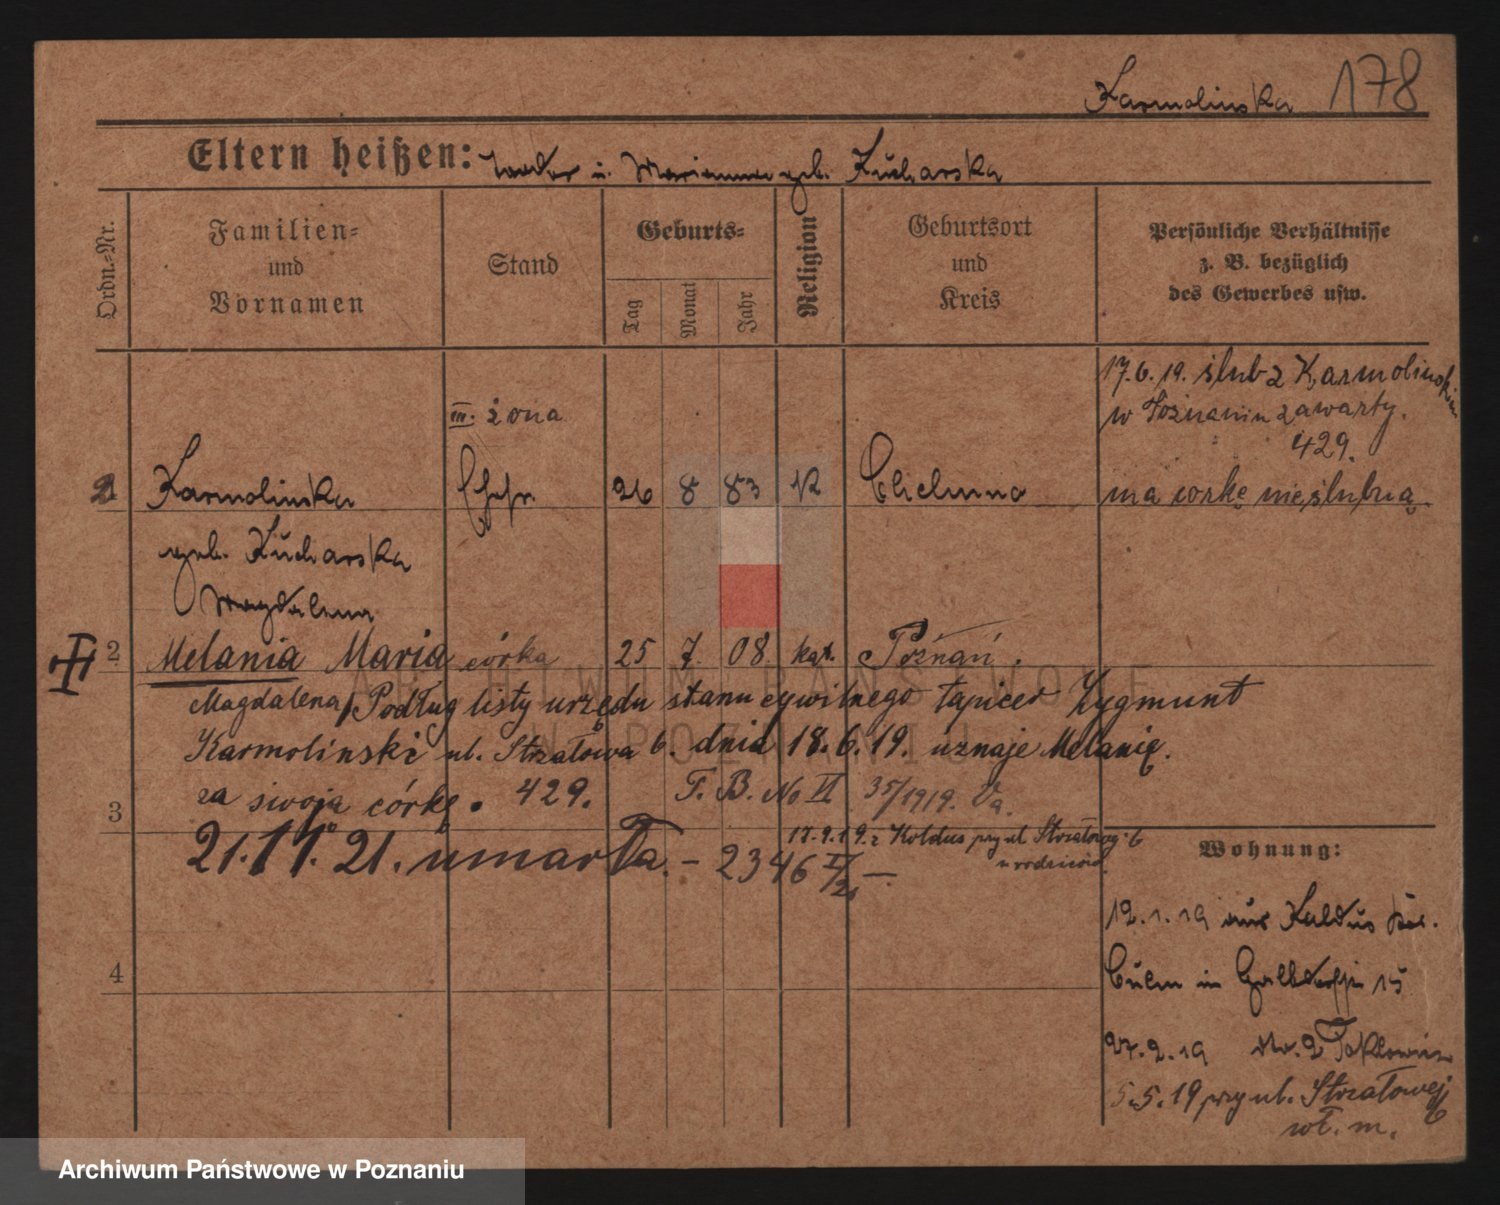 Karmolinska 178
Eltern heißen: u. Marianna geb. Kucharska
Ordn.-Nr.
Familien- und Vornamen
Stand
Geburts-
Tag
Monat
Jahr
Religion
Geburtsort und Kreis
Persönliche Verhältnisse
z. B. bezüglich
des Gewerbes usw.
17.6.19. ślub z Karmolinskim
w Poznaniu zawarty.
429.
III. żona
Karmolinska Ehefr. 26 8 83 K Chelmno ma corkę nieślubną
geb. Kucharska
Magdalena
2 Melania Maria córka 25 7. 08 kat. Poznań.
Magdalena Podług listy urzędu stanu cywilnego tapicer Zygmunt
Karmolinski ul. Strzałowa 6. dnia 18.6.19. uznaje Melanię.
za swoją córkę. 429. F. B. No VI 35/1919.
3
17.9.19. z Koldus przy ul. Strzałowej 6
u rodziców.
21.11.21. umarła. - 2346 -
Wohnung:
12.1.19 aus Kaldus Kr.
Culm in 15
4
27.2.19
5.5.19 przy ul. Strzałowej 6
wł. m.
ARCHIWUM PAŃSTWOWE
W POZNANIU
Archiwum Państwowe w Poznaniu